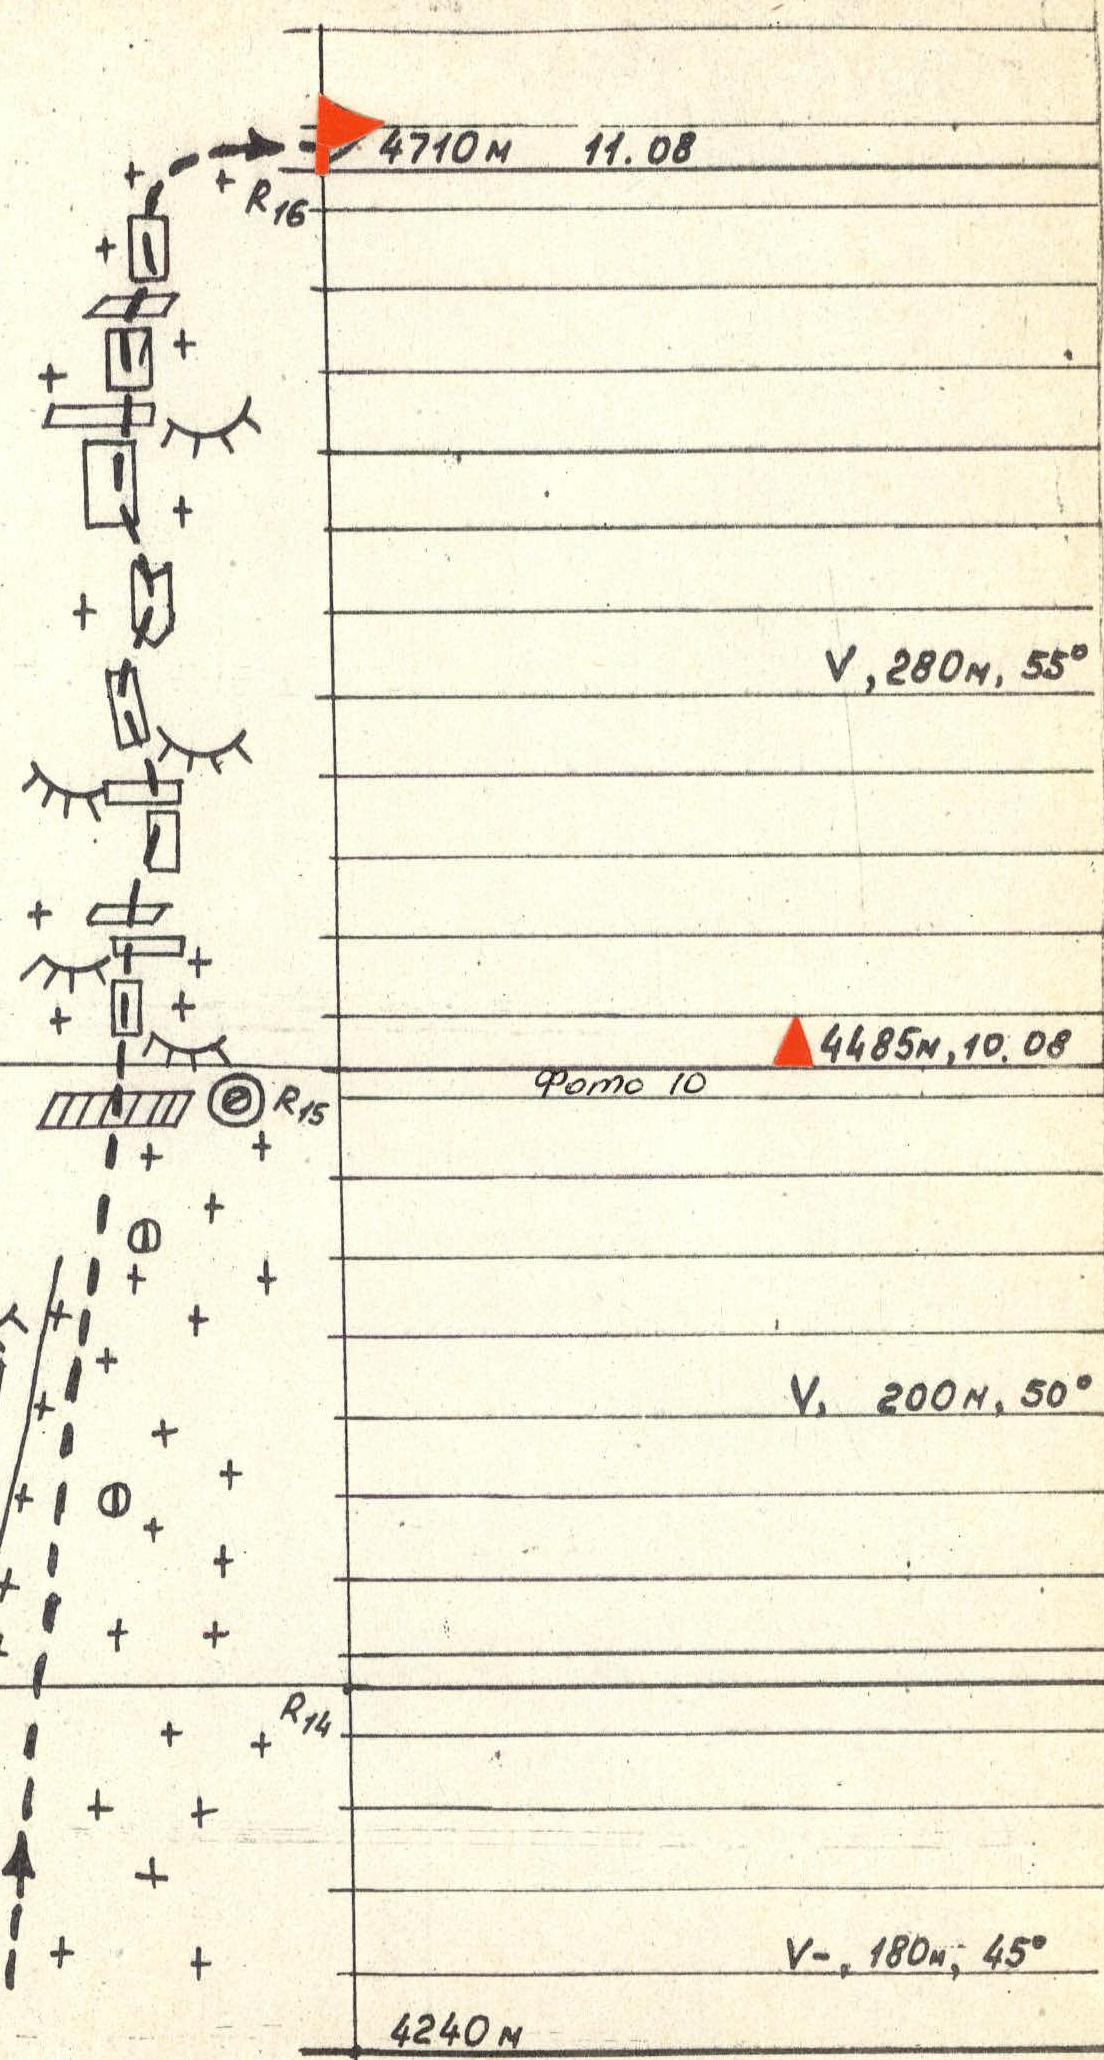 4710м 11.08
R16
V, 280м, 55°
4485м, 10.08
Фото 10
R15
V, 200м, 50°
R14
V-, 180м, 45°
4240м